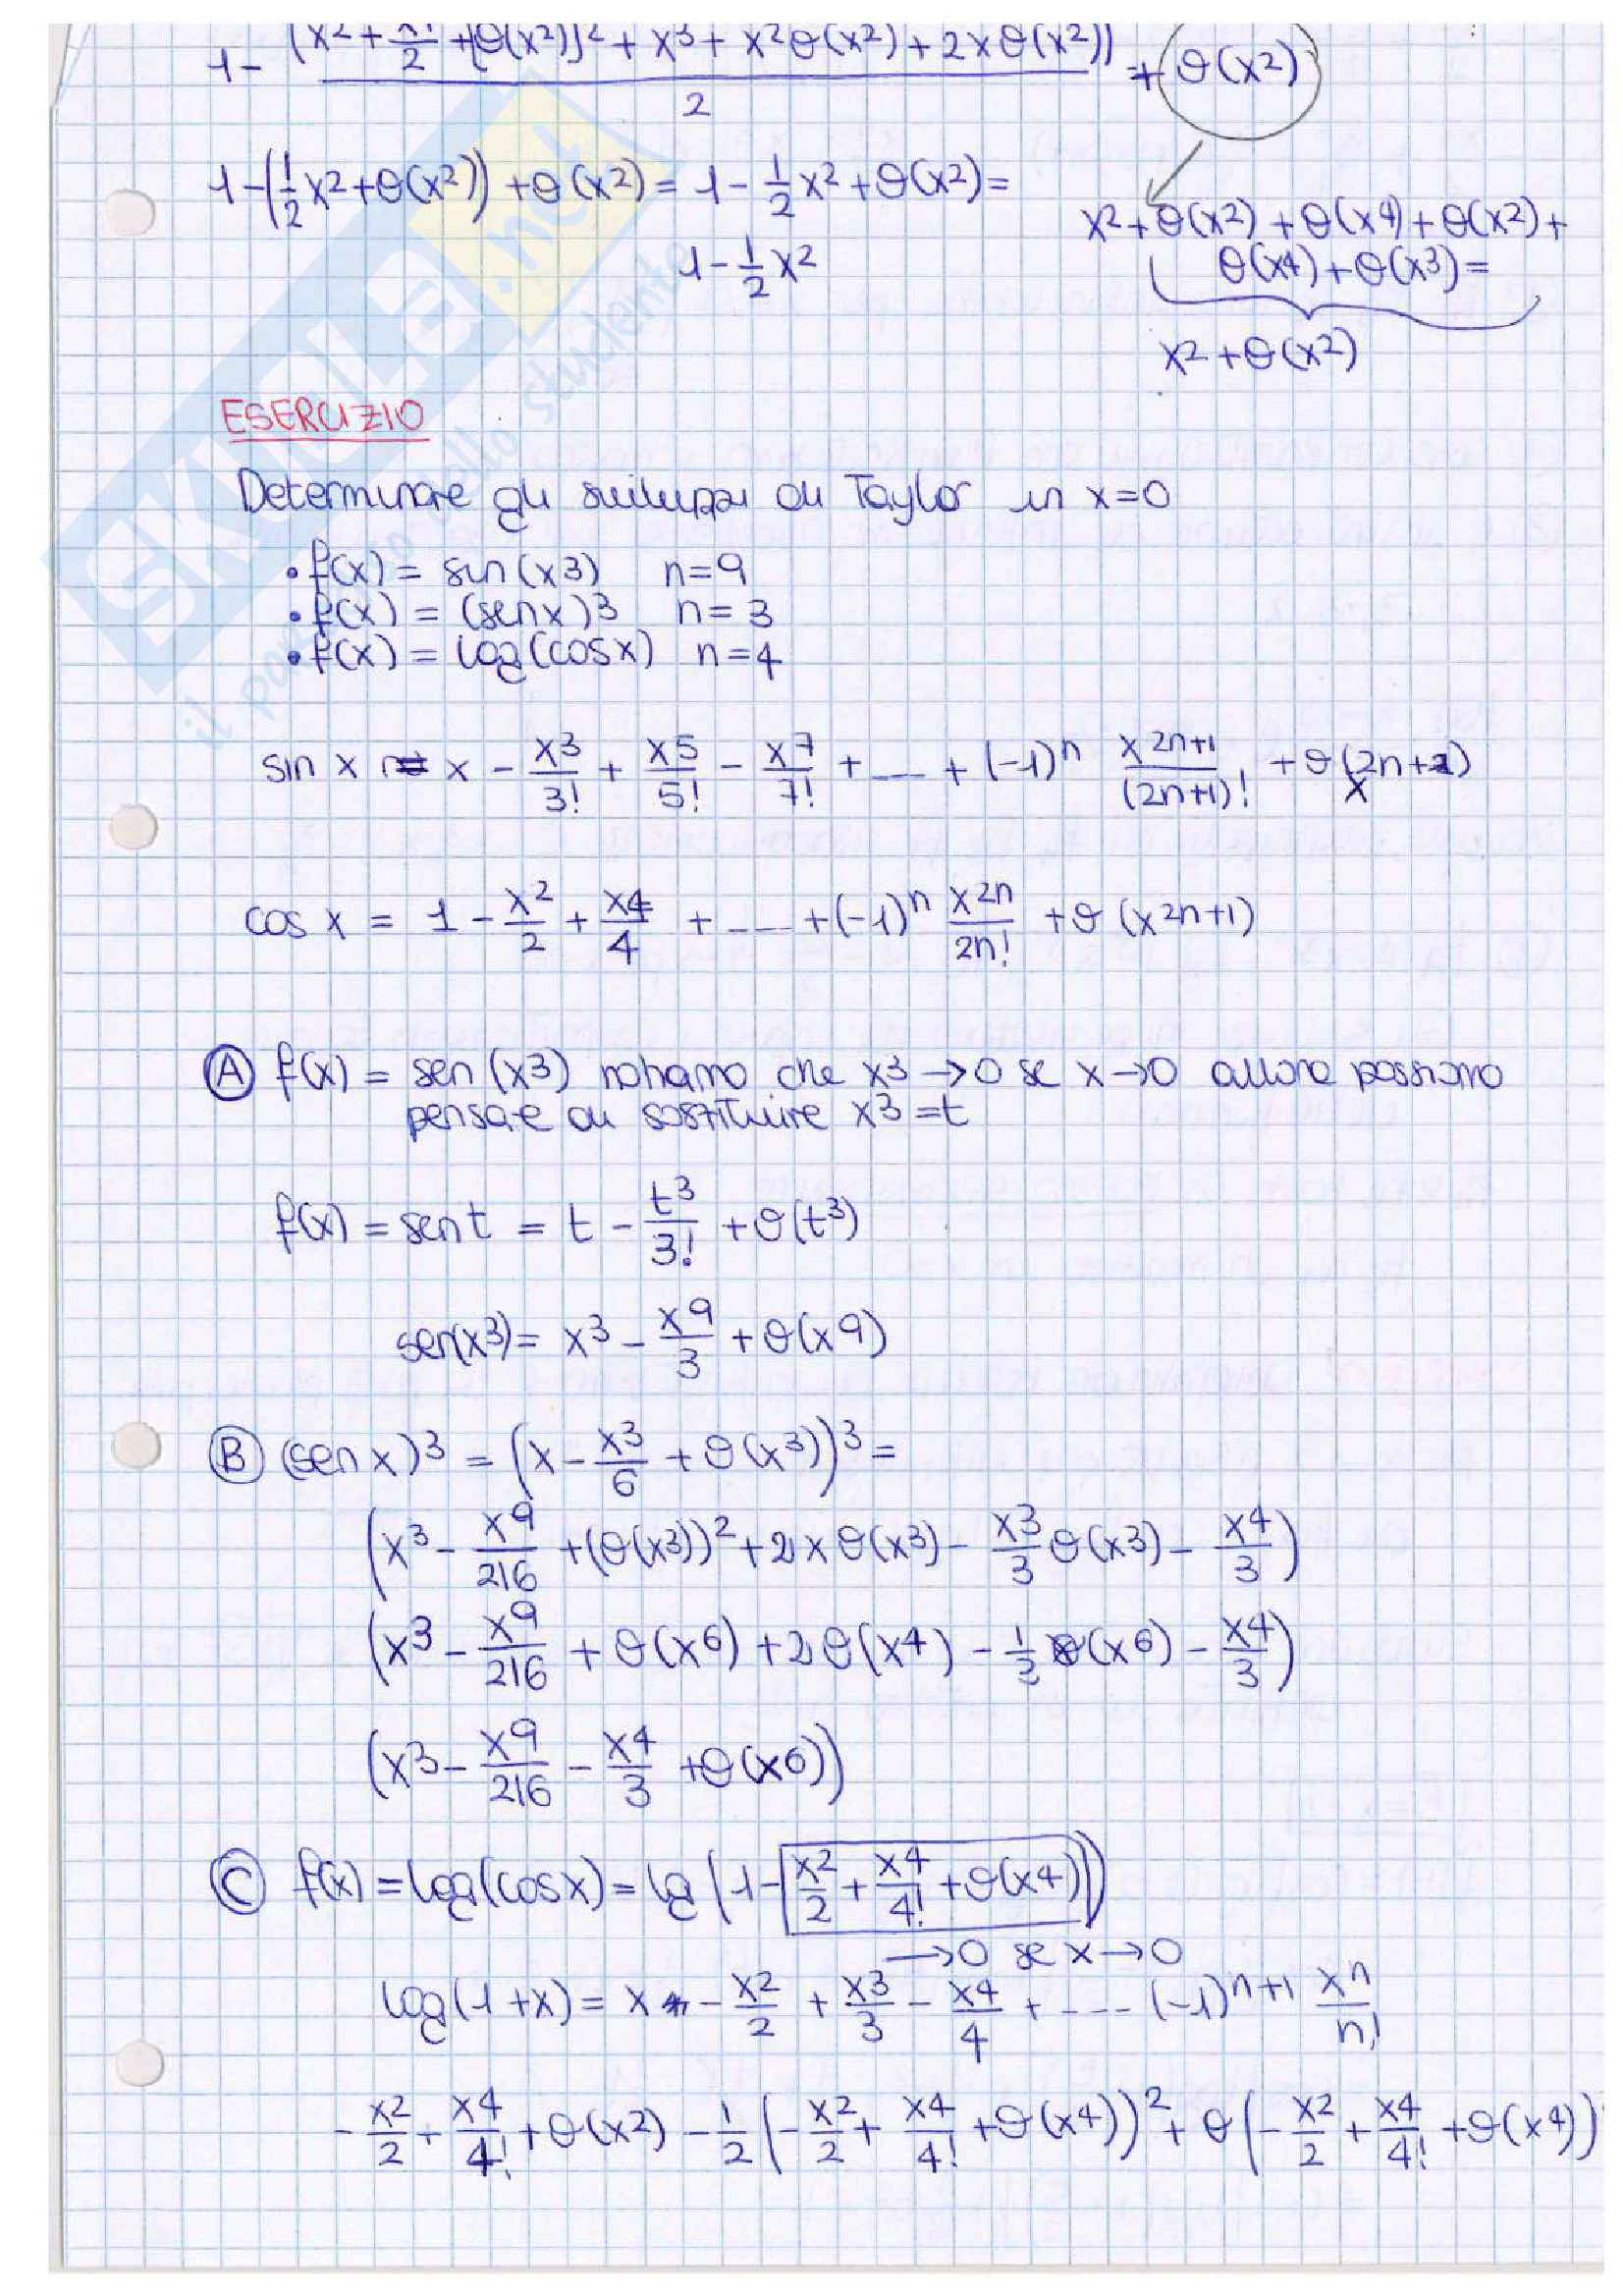 1 - (x² + x⁴/2 + [θ(x²)]² + x³ + x²θ(x²) + 2xθ(x²)) / 2 + θ(x²)
1 - (1/2 x² + θ(x²)) + θ(x²) = 1 - 1/2 x² + θ(x²) =
1 - 1/2 x²
x² + θ(x²) + θ(x⁴) + θ(x²) +
θ(x⁴) + θ(x³) =
x² + θ(x²)
ESERCIZIO
Determinare gli sviluppi di Taylor in x=0
• f(x) = sin(x³) n=9
• f(x) = (senx)³ n=3
• f(x) = log(cosx) n=4
sin x = x - x³/3! + x⁵/5! - x⁷/7! + ... + (-1)ⁿ x²ⁿ⁺¹/(2n+1)! + θ(x 2n+2)
cos x = 1 - x²/2 + x⁴/4 + ... + (-1)ⁿ x²ⁿ/2n! + θ(x²ⁿ⁺¹)
Ⓐ f(x) = sen(x³) notiamo che x³→0 se x→0 allora possiamo
pensare di sostituire x³=t
f(x) = sent = t - t³/3! + θ(t³)
sen(x³) = x³ - x⁹/3 + θ(x⁹)
Ⓑ (sen x)³ = (x - x³/6 + θ(x³))³ =
(x³ - x⁹/216 + (θ(x³))² + 2xθ(x³) - x³/3 θ(x³) - x⁴/3)
(x³ - x⁹/216 + θ(x⁶) + 2θ(x⁴) - 1/3 θ(x⁶) - x⁴/3)
(x³ - x⁹/216 - x⁴/3 + θ(x⁶))
Ⓒ f(x) = log(cosx) = lg (1 - x²/2 + x⁴/4! + θ(x⁴))
→0 se x→0
log(1+x) = x - x²/2 + x³/3 - x⁴/4 + .... (-1)ⁿ⁺¹ xⁿ/n!
- x²/2 + x⁴/4! + θ(x²) - 1/2 (- x²/2 + x⁴/4! + θ(x⁴))² + θ(- x²/2 + x⁴/4! + θ(x⁴))
SKUOLA.net